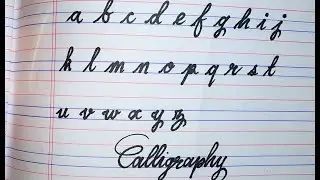 a b c d e f g h i j
k l m n o p q r s t
u v w x y z
Calligraphy